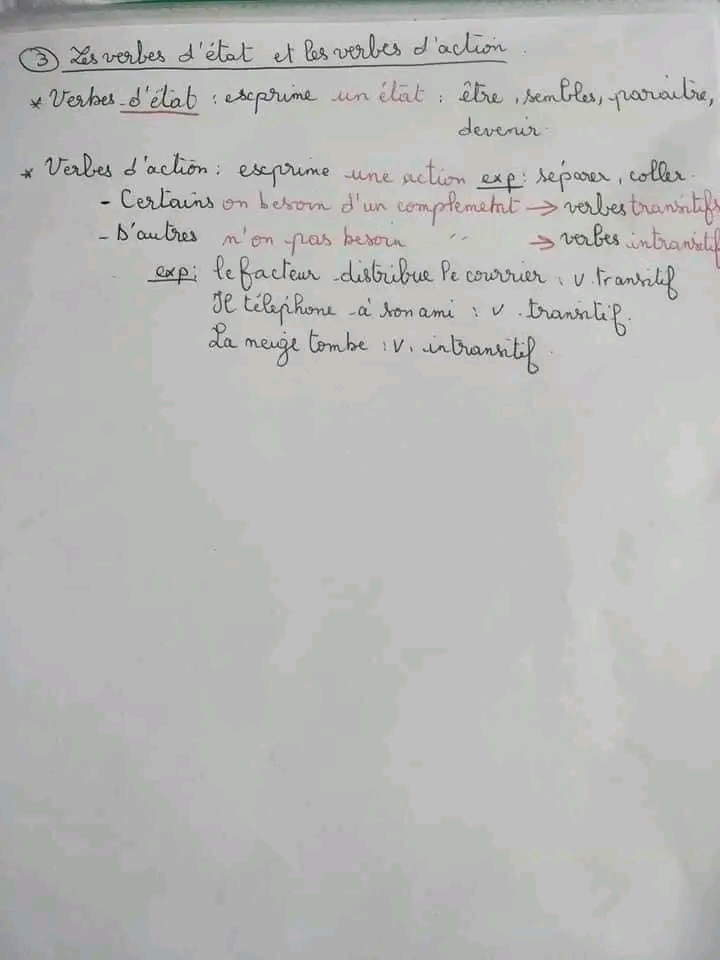 ③ Les verbes d'état et les verbes d'action.
* Verbes d'état : escprime un état : être, sembles, paraitre,
devenir.
* Verbes d'action : escprime une action exp: séparer, coller.
- Certains on besoin d'un complement → verbes transitifs
- D'autres n'on pas besoin '' → verbes intransitif
exp: le facteur distribue le courrier : v. transitif
Il télephone à son ami : v. transitif.
La neige tombe : v. intransitif.